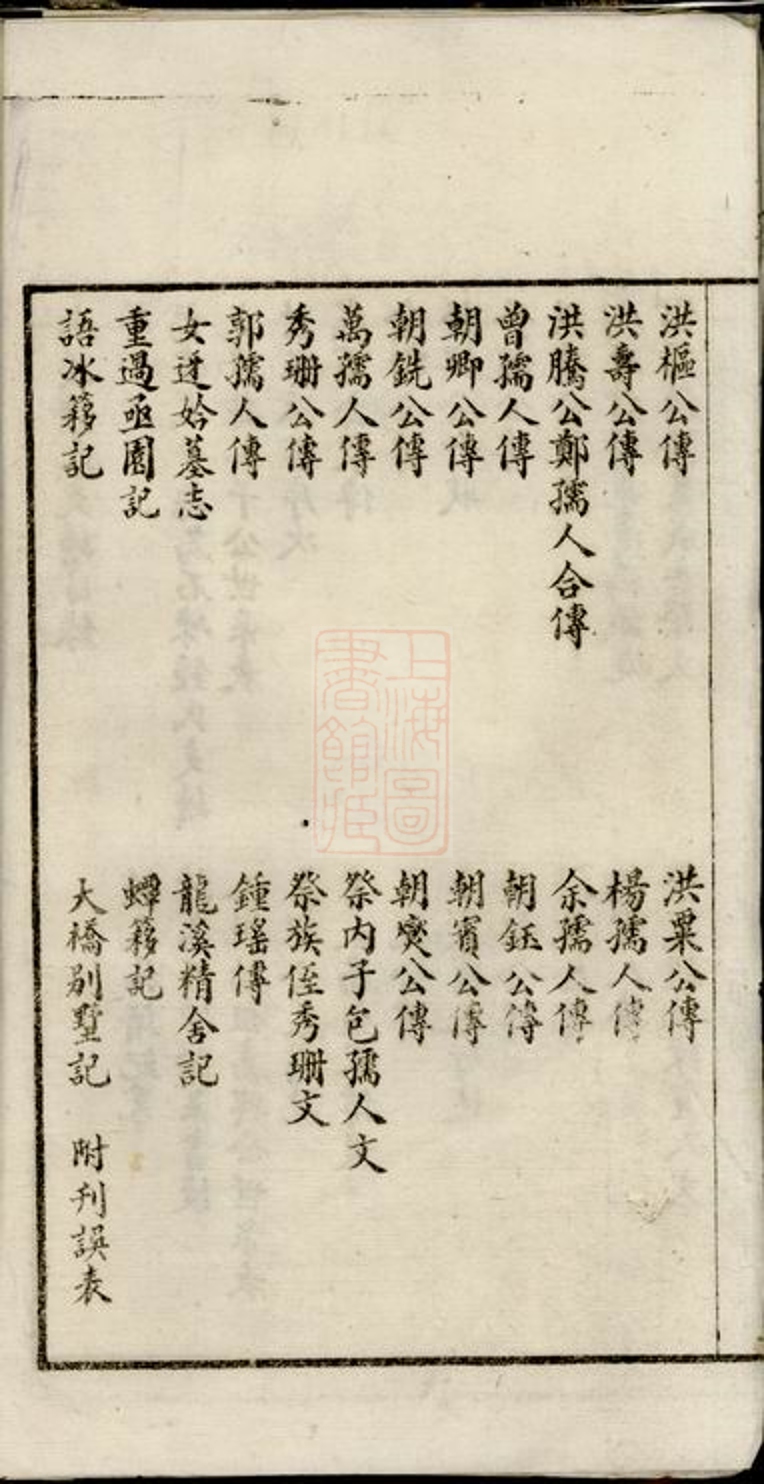 洪樞公傳 洪粟公傳
洪壽公傳 楊孺人傳
洪騰公鄭孺人合傳 余孺人傳
曾孺人傳 朝鈺公傳
朝卿公傳 朝賓公傳
朝銑公傳 朝燮公傳
萬孺人傳 祭內子包孺人文
秀珊公傳 祭族侄秀珊文
郭孺人傳 鍾瑤傳
女迓姶墓志 龍溪精舍記
重過亟園記 蟫簃記
語冰簃記 大橋別墅記 附刊誤表
上海圖書館